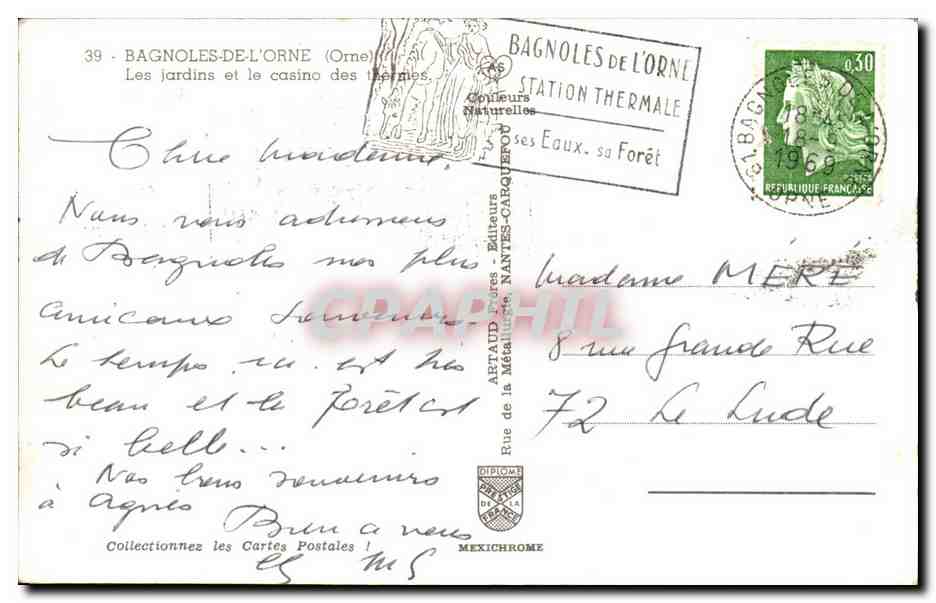 39 - BAGNOLES-DE-L'ORNE (Orne)
Les jardins et le casino des thermes.
Couleurs
Naturelles
BAGNOLES DE L'ORNE
STATION THERMALE
ses Eaux. sa Forêt
0,30
POSTES
REPUBLIQUE FRANÇAISE
61 BAGNOLES DE L'ORNE
18
1969
ORNE
Chère Madame,
Nous vous adressons
de Bagnoles nos plus
amicaux souvenirs.
Le temps ici est très
beau et la Forêt est
si belle...
Nos bons souvenirs
à Agnès
Bien à vous
Madame MÉRÉ
8 rue Grande Rue
72 Le Lude
ARTAUD Frères - Editeurs
Rue de la Métallurgie, NANTES-CARQUEFOU
DIPLOME
PRESTIGE
DE LA
FRANCE
MEXICHROME
Collectionnez les Cartes Postales !
CPAPHIL